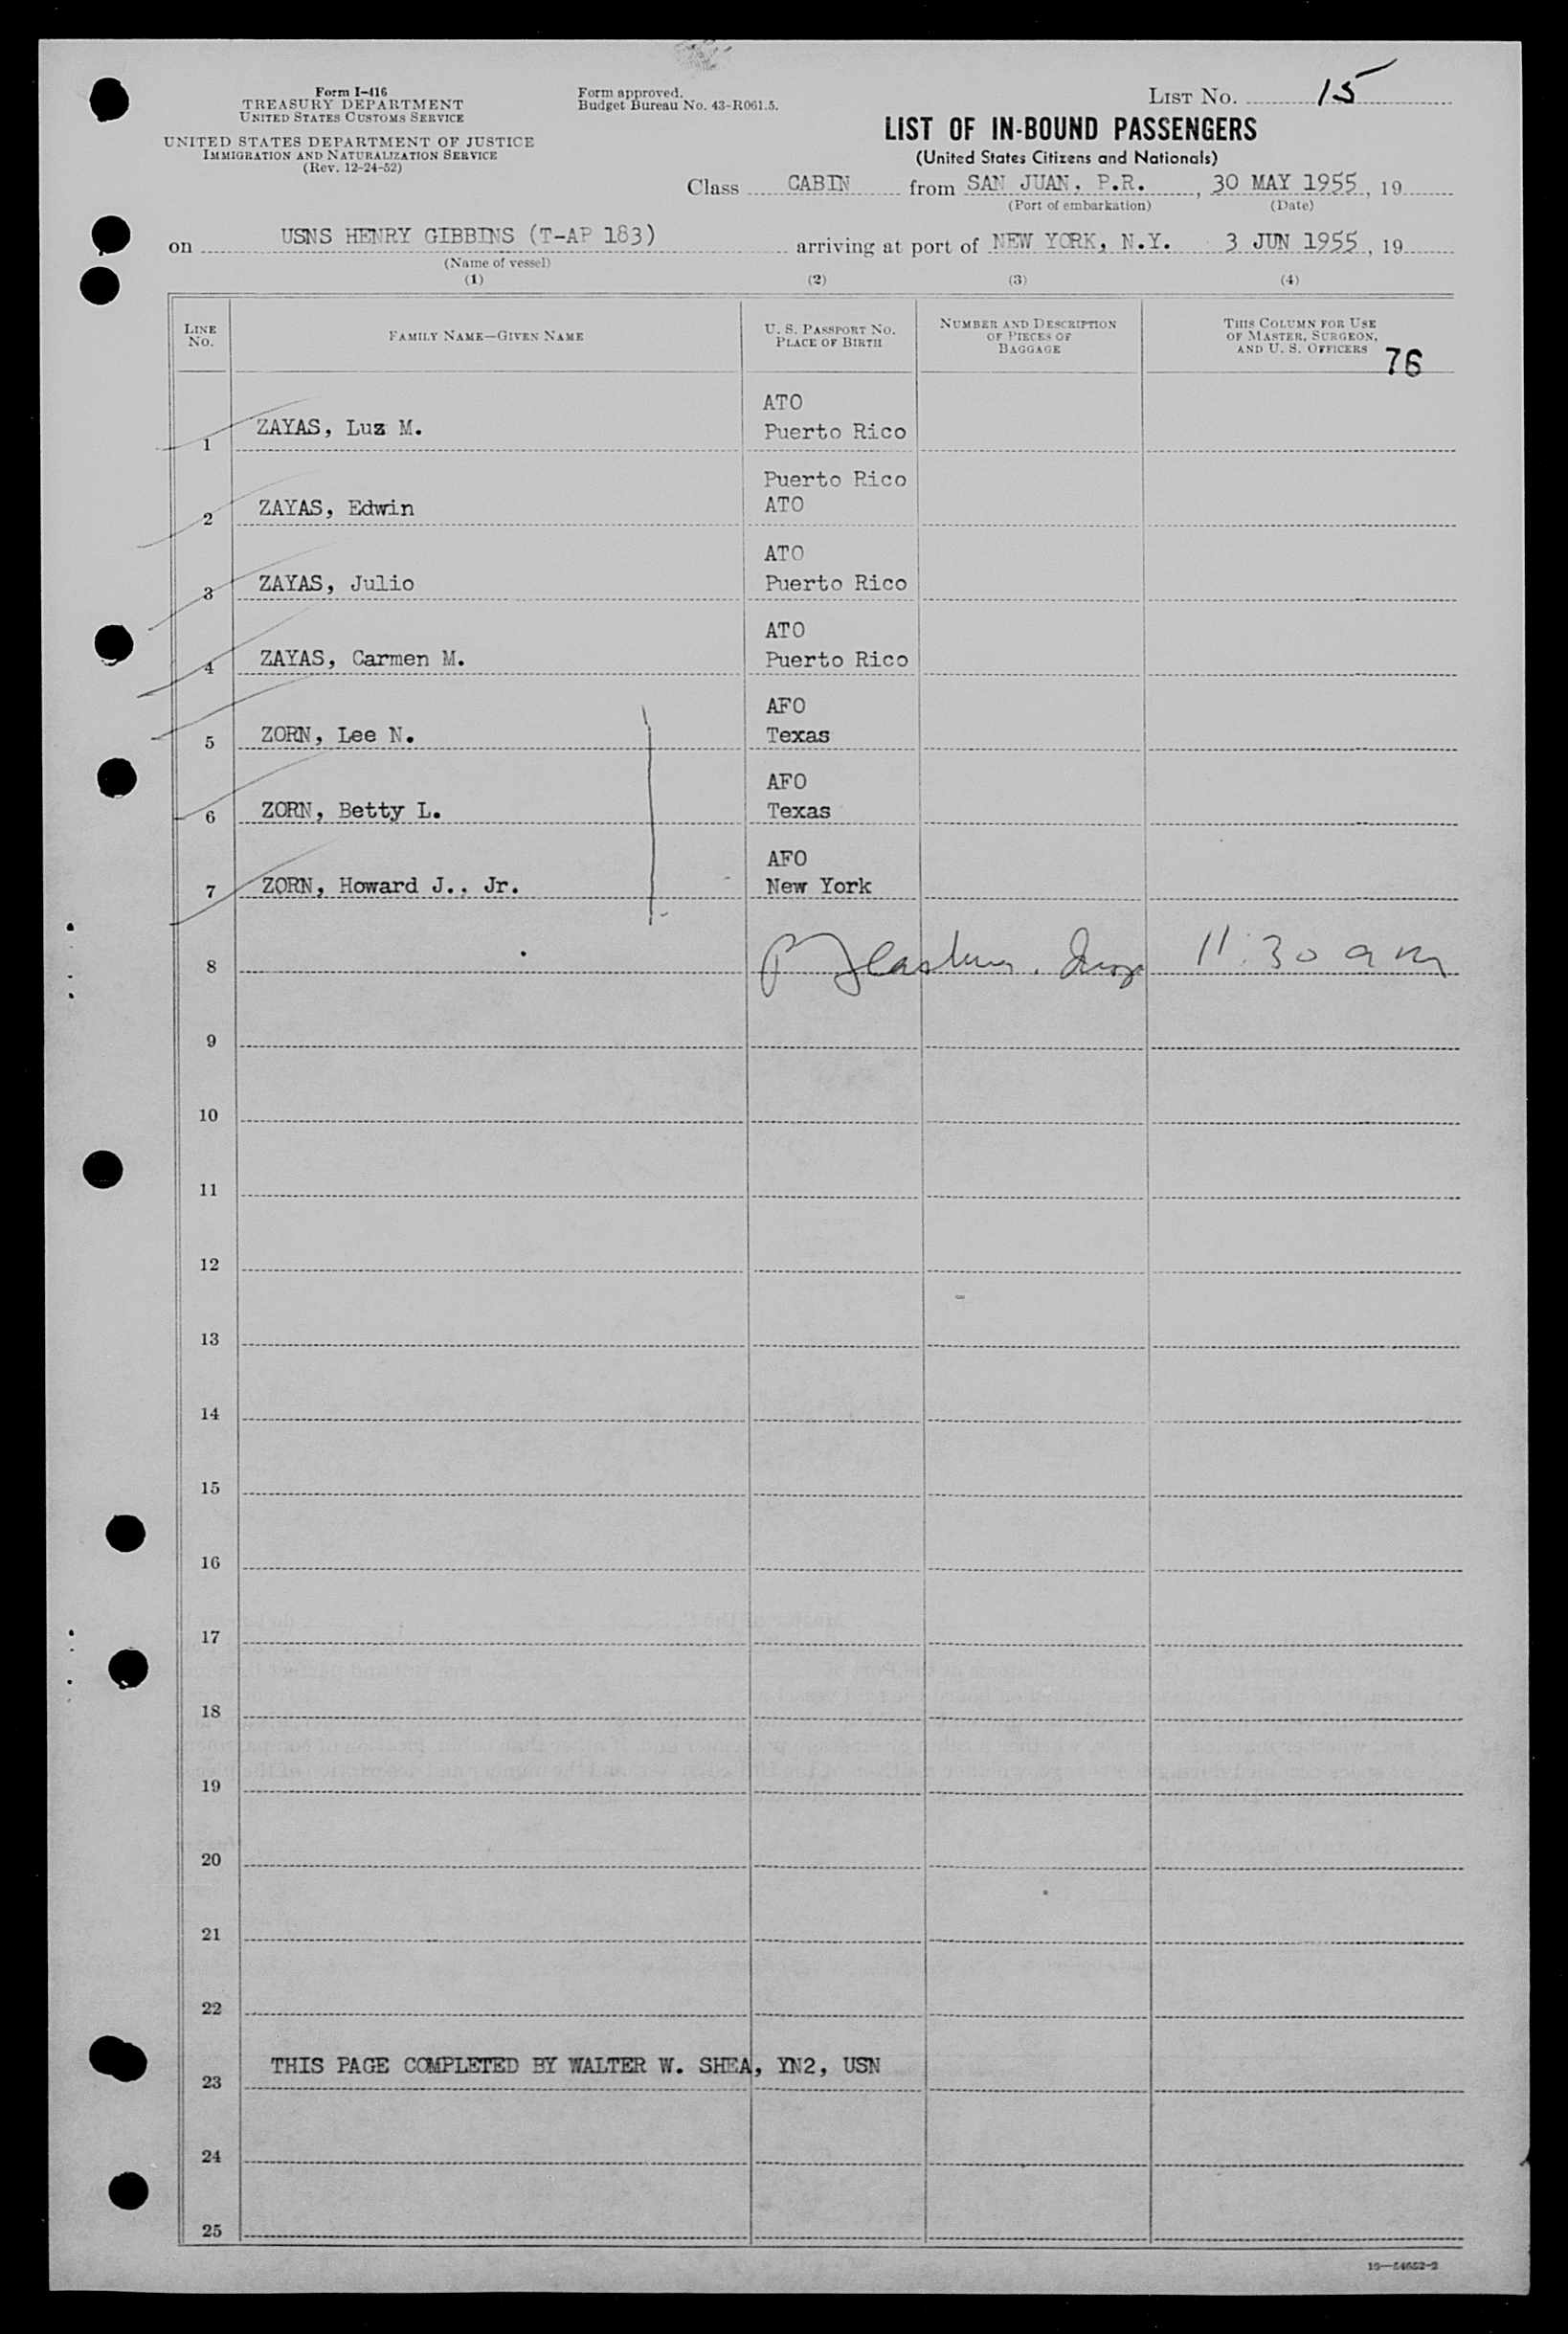 Form I-416
TREASURY DEPARTMENT
UNITED STATES CUSTOMS SERVICE
UNITED STATES DEPARTMENT OF JUSTICE
IMMIGRATION AND NATURALIZATION SERVICE
(Rev. 12-24-52)
Form approved.
Budget Bureau No. 43-R061.5.
LIST NO. 15
LIST OF IN-BOUND PASSENGERS
(United States Citizens and Nationals)
Class CABIN from SAN JUAN. P.R. , 30 MAY 1955, 19
(Port of embarkation) (Date)
on USNS HENRY GIBBINS (T-AP 183) arriving at port of NEW YORK, N.Y. 3 JUN 1955, 19
(Name of vessel)
(1) (2) (3) (4)
LINE NO.
FAMILY NAME—GIVEN NAME
U. S. PASSPORT NO.
PLACE OF BIRTH
NUMBER AND DESCRIPTION
OF PIECES OF
BAGGAGE
THIS COLUMN FOR USE
OF MASTER, SURGEON,
AND U. S. OFFICERS
76
ATO
1 ZAYAS, Luz M. Puerto Rico
Puerto Rico
2 ZAYAS, Edwin ATO
ATO
3 ZAYAS, Julio Puerto Rico
ATO
4 ZAYAS, Carmen M. Puerto Rico
AFO
5 ZORN, Lee N. Texas
AFO
6 ZORN, Betty L. Texas
AFO
7 ZORN, Howard J., Jr. New York
8 11:30 am
9
10
11
12
13
14
15
16
17
18
19
20
21
22
THIS PAGE COMPLETED BY WALTER W. SHEA, YN2, USN
23
24
25
16—54652-2